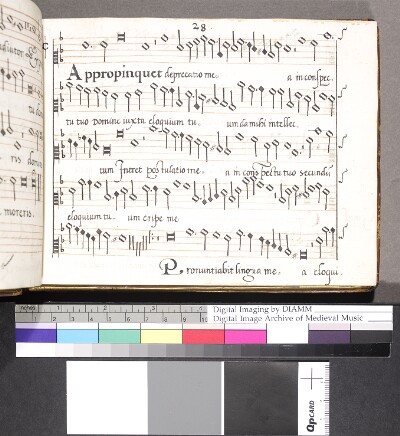 28
Appropinquet deprecatio me. a in conspec.
tu tuo Domine iuxta eloquium tu. um da mihi intellec.
tum Intret postulatio me. a in conspectu tuo secundū
eloquium tu. um eripe me
Pronuntiabit lingua me. a eloqui.
ris
moreris.
inches 1 2 3 4 5 6 7
Digital Imaging by DIAMM
Digital Image Archive of Medieval Music
QPCARD